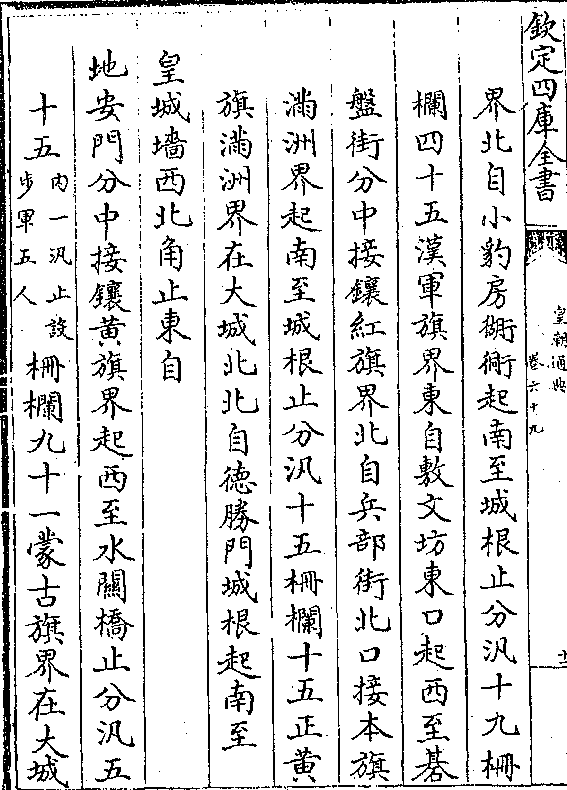 欽定四庫全書
皇朝通典
卷六十九
界北自小豹房衚衕起南至城根止分汛十九柵
欄四十五漢軍旗界東自敷文坊東口起西至碁
盤街分中接鑲紅旗界北自兵部街北口接本旗
滿洲界起南至城根止分汛十五柵欄十五正黄
旗滿洲界在大城北北自德勝門城根起南至
皇城墻西北角止東自
地安門分中接鑲黄旗界起西至水關橋止分汛五
十五内一汛止設步軍五人柵欄九十一蒙古旗界在大城